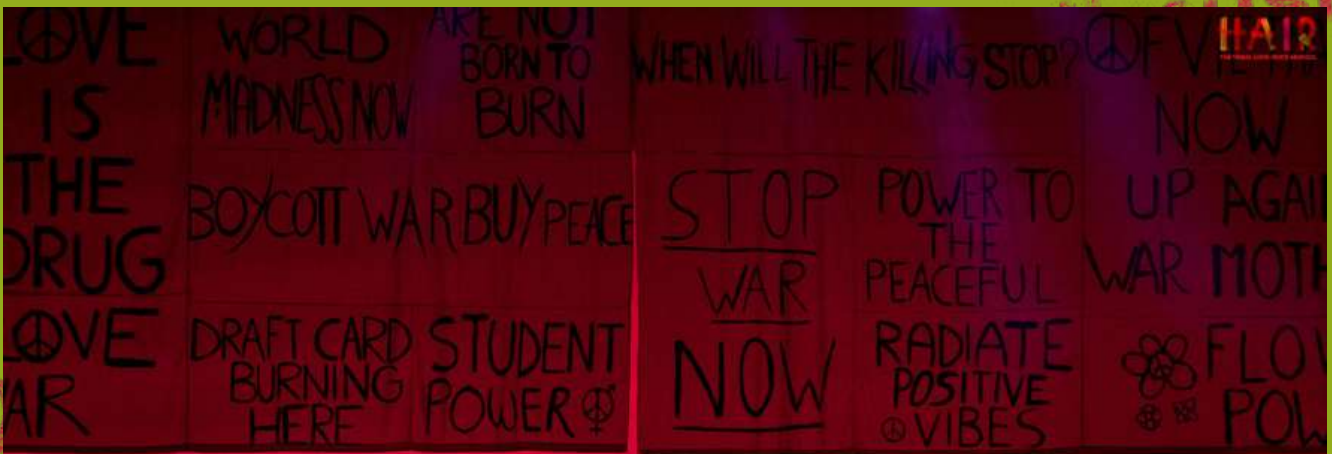 LOVE
IS
THE
DRUG
LOVE
WAR
WORLD
MADNESS NOW
ARE NOT
BORN TO
BURN
BOYCOTT WAR BUY PEACE
DRAFT CARD
BURNING
HERE
STUDENT
POWER
WHEN WILL THE KILLING STOP?
STOP
WAR
NOW
POWER TO
THE
PEACEFUL
RADIATE
POSITIVE
VIBES
OF
NOW
UP AGAI
WAR MOTH
FLOW
POW
HAIR